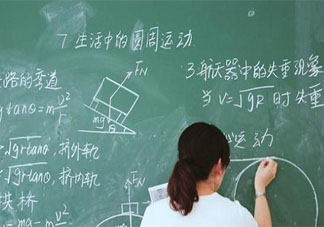 7 生活中的圆周运动
路的弯道
gtanθ=m v²/r
√grtanθ, 挤外轨
√grtanθ, 挤内轨
拱桥
=mg-m v²
F_N
mg
θ
F_N
3.航天器中的失重现象
当 V=√gR 时失重
运动